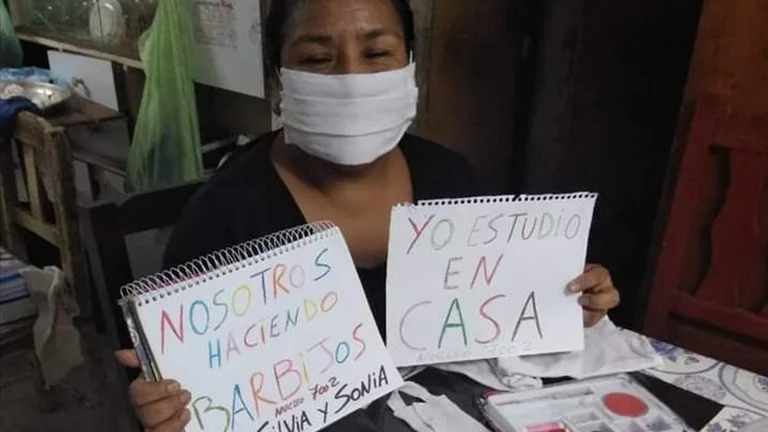 NOSOTROS
HACIENDO
BARBIJOS
NUCLEO 7002
SILVIA Y SONIA
YO ESTUDIO
EN
CASA
NUCLEO 7002